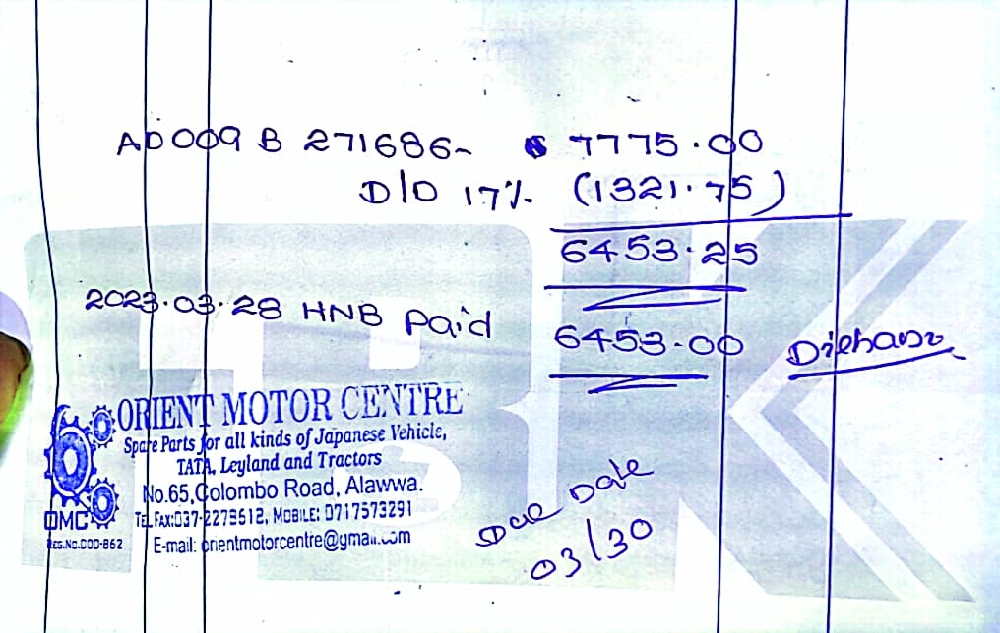 AD009B 271686- 7775.00
D/D 17% (1321.75)
6453.25
2023.03.28 HNB Paid 6453.00
ORIENT MOTOR CENTRE
Spare Parts for all kinds of Japanese Vehicle,
TATA, Leyland and Tractors
No.65, Colombo Road, Alawwa.
MOBILE: 0717573291
OMC
E-mail: orientmotorcentre@
Due Date
03/30